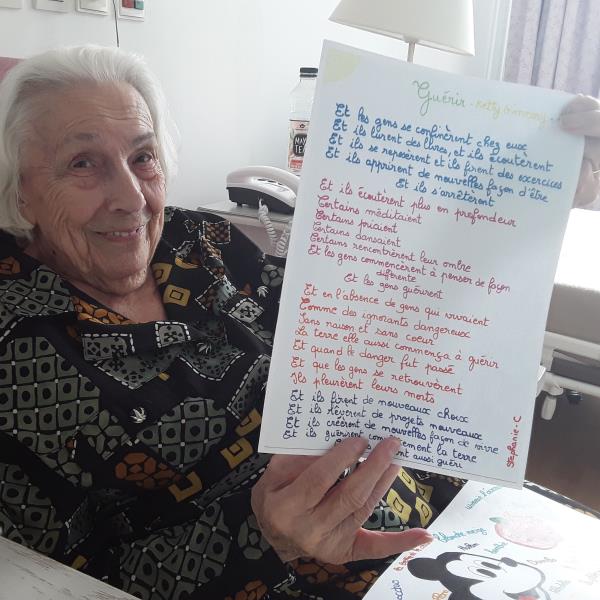 Guérir - Ketty O'meary -
Et les gens se confinèrent chez eux
Et ils lurent des livres, et ils écoutèrent
Et ils se reposèrent et ils firent des exercices
Et ils apprirent de nouvelles façon d'être
Et ils s'arrêtèrent
Et ils écoutèrent plus en profondeur
Certains méditaient
Certains priaient
Certains dansaient
Certains rencontrèrent leur ombre
Et les gens commencèrent à penser de façon
différente
Et les gens guérirent
Et en l'absence de gens qui vivaient
Comme des ignorants dangereux
Sans raison et sans coeur
La terre elle aussi commença à guérir
Et quand le danger fut passé
Et que les gens se retrouvèrent
Ils pleurèrent leurs morts
Et ils firent de nouveaux choix
Et ils rêvèrent de projets nouveaux
Et ils créèrent de nouvelles façon de vivre
Et ils guérirent la terre
aussi guéri
Stephanie-C
MAY
TEA